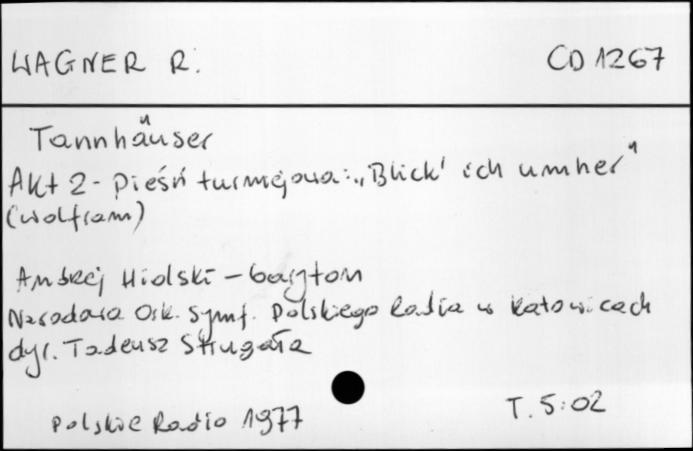 WAGNER R. CD 1267
Tannhäuser
Akt 2 - Pieśń turniejowa: „Blick' ich umher"
(Wolfram)
Andrzej Hiolski - baryton
Narodowa Ork. Symf. Polskiego Radia w Katowicach
dyr. Tadeusz Strugała
Polskie Radio 1977 T. 5:02